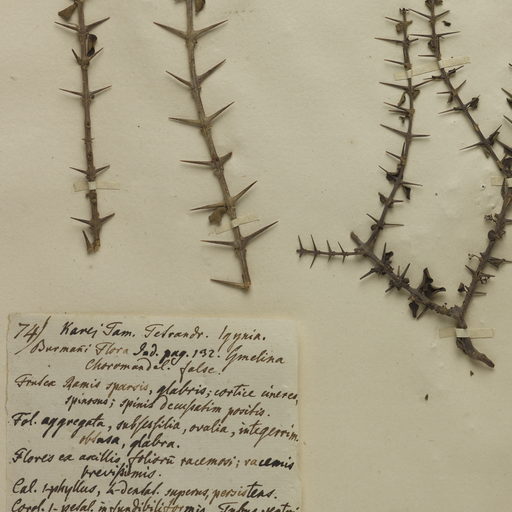 74/ Karej Tam. Tetrandr. 1gynia.
Burmañi Flora Ind. pag. 132. Gmelina
Choromandel. false.
Frutex Ramis sparsis, glabris; cortice cinereo,
spinosus; spinis decussatim positis.
Fol. aggregata, subsessilia, ovalia, integerrim.
obtusa, glabra.
Flores ex axillis foliorū racemosi; racemis
brevissimis.
Cal. 1-phyllus, 4-dentat. superus, persistens.
Corol. 1-petal. infundibiliformis, Tubus